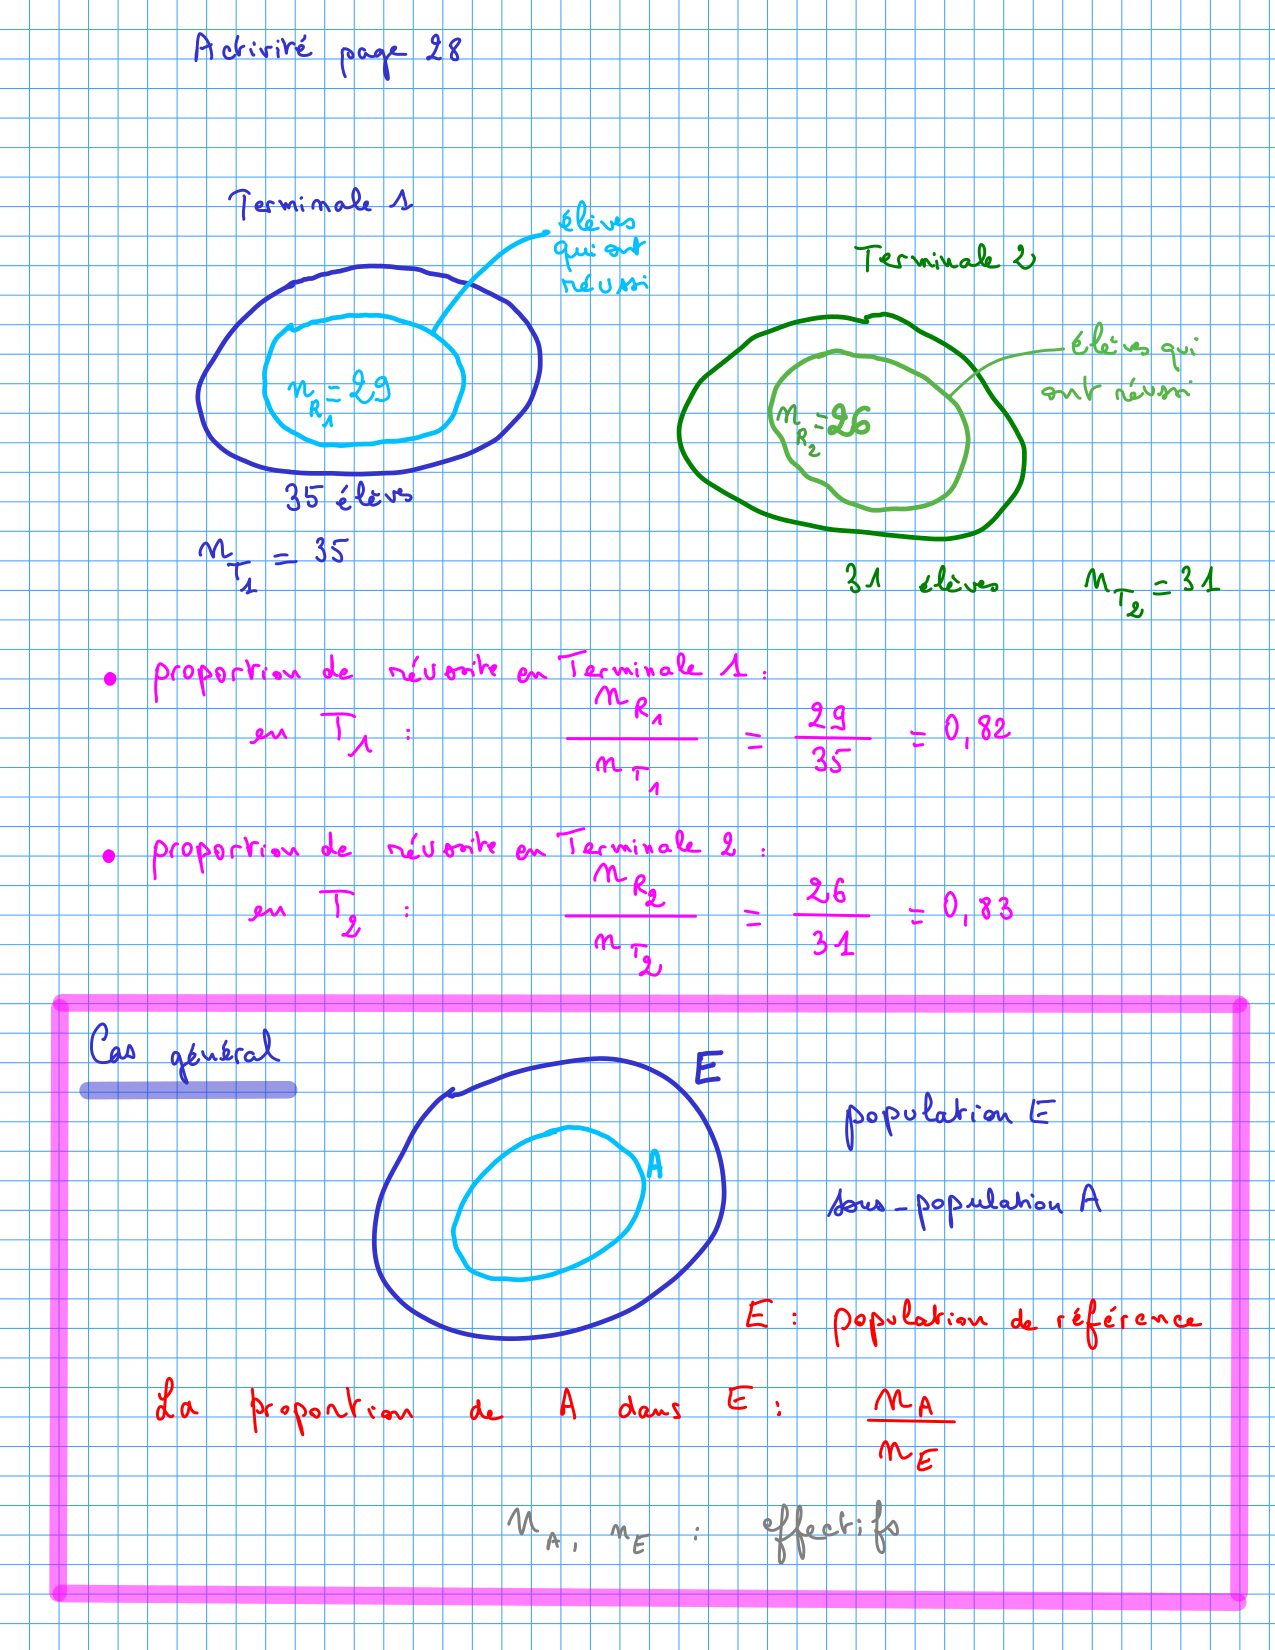 Activité page 28
Terminale 1
élèves
qui ont
réussi
n_{R_1} = 29
35 élèves
n_{T_1} = 35
Terminale 2
élèves qui
ont réussi
n_{R_2} = 26
31 élèves n_{T_2} = 31
• proportion de réussite en Terminale 1 :
en T_1 : n_{R_1} / n_{T_1} = 29/35 = 0,82
• proportion de réussite en Terminale 2 :
en T_2 : n_{R_2} / n_{T_2} = 26/31 = 0,83
Cas général
E
A
population E
sous-population A
E : population de référence
La proportion de A dans E : n_A / n_E
n_A, n_E : effectifs